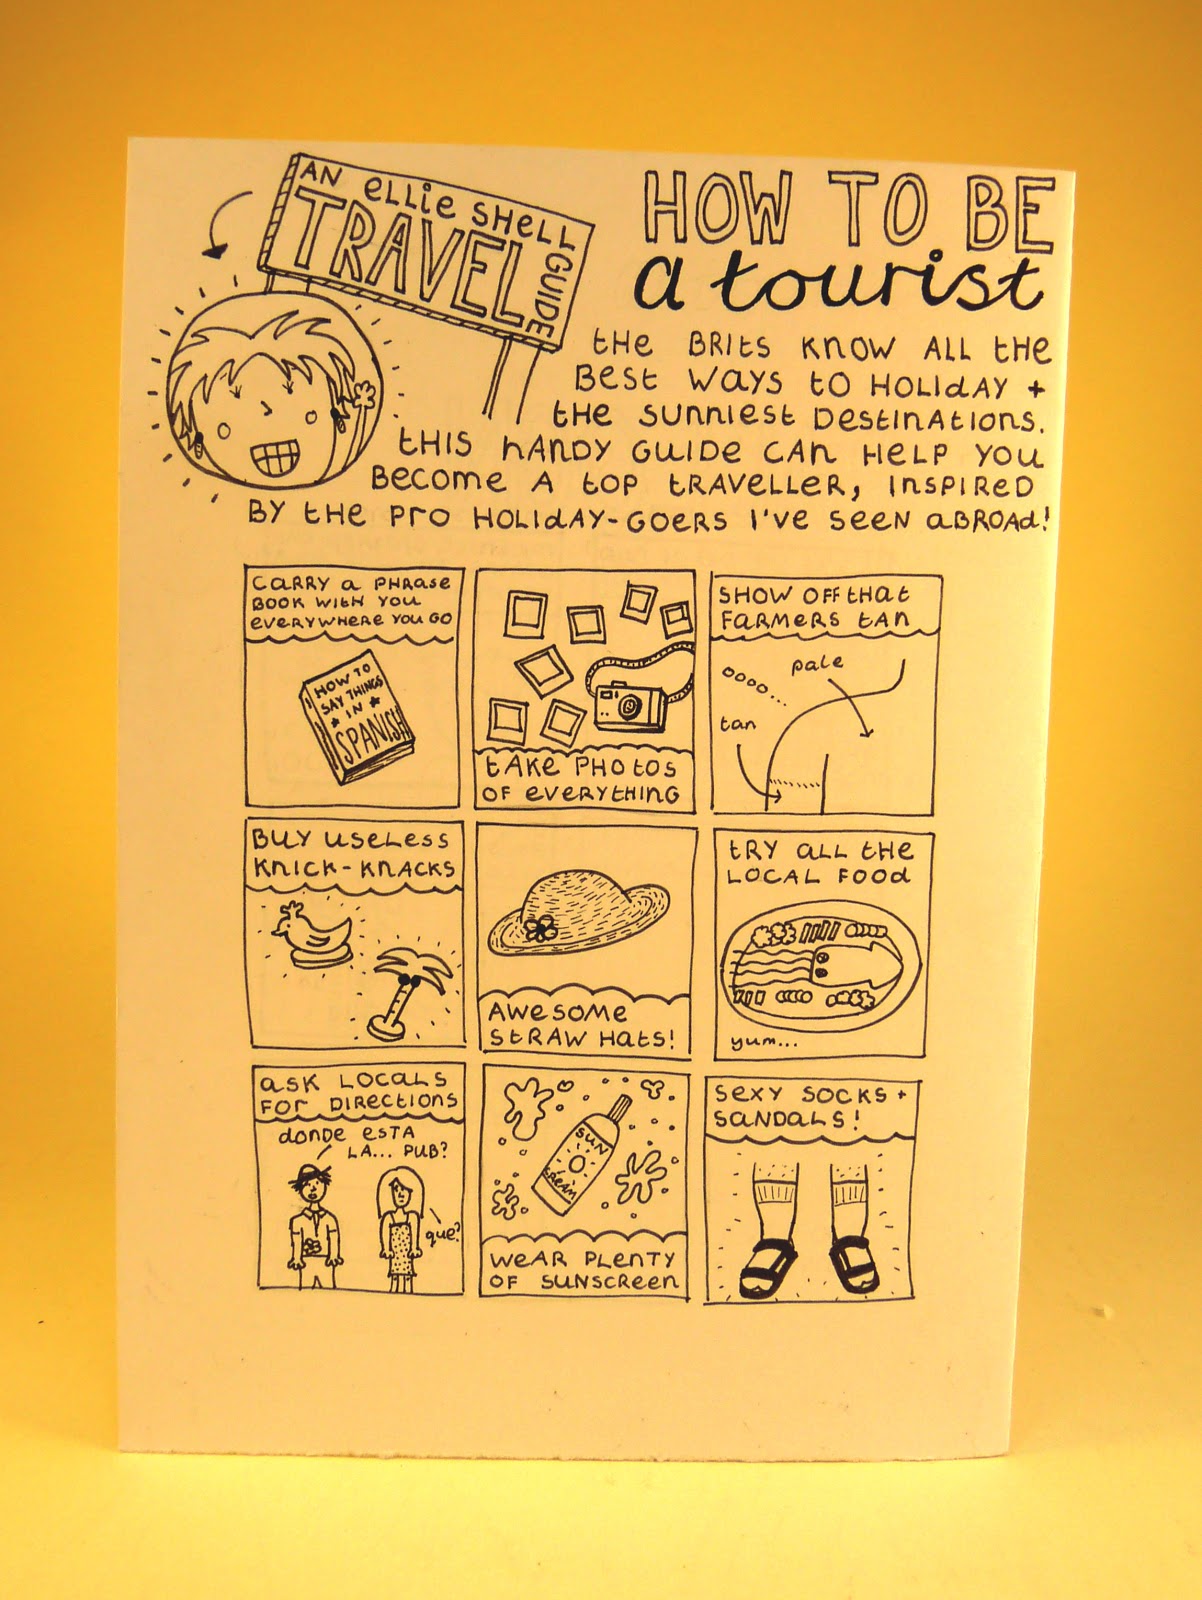 AN ELLIE SHELL
TRAVEL
GUIDE
HOW TO BE
a tourist
THE BRITS KNOW ALL THE
BEST WAYS TO HOLIDAY +
THE SUNNIEST DESTINATIONS.
THIS HANDY GUIDE CAN HELP YOU
BECOME A TOP TRAVELLER, INSPIRED
BY THE PRO HOLIDAY-GOERS I'VE SEEN ABROAD!
CARRY A PHRASE
BOOK WITH YOU
EVERYWHERE YOU GO
HOW TO
SAY THINGS
IN
SPANISH
TAKE PHOTOS
OF EVERYTHING
SHOW OFF THAT
FARMERS TAN
pale
tan
BUY USELESS
KNICK-KNACKS
AWESOME
STRAW HATS!
TRY ALL THE
LOCAL FOOD
yum...
ASK LOCALS
FOR DIRECTIONS
donde ESTA
LA... PUB?
que?
SUN
CREAM
WEAR PLENTY
OF SUNSCREEN
SEXY SOCKS +
SANDALS!